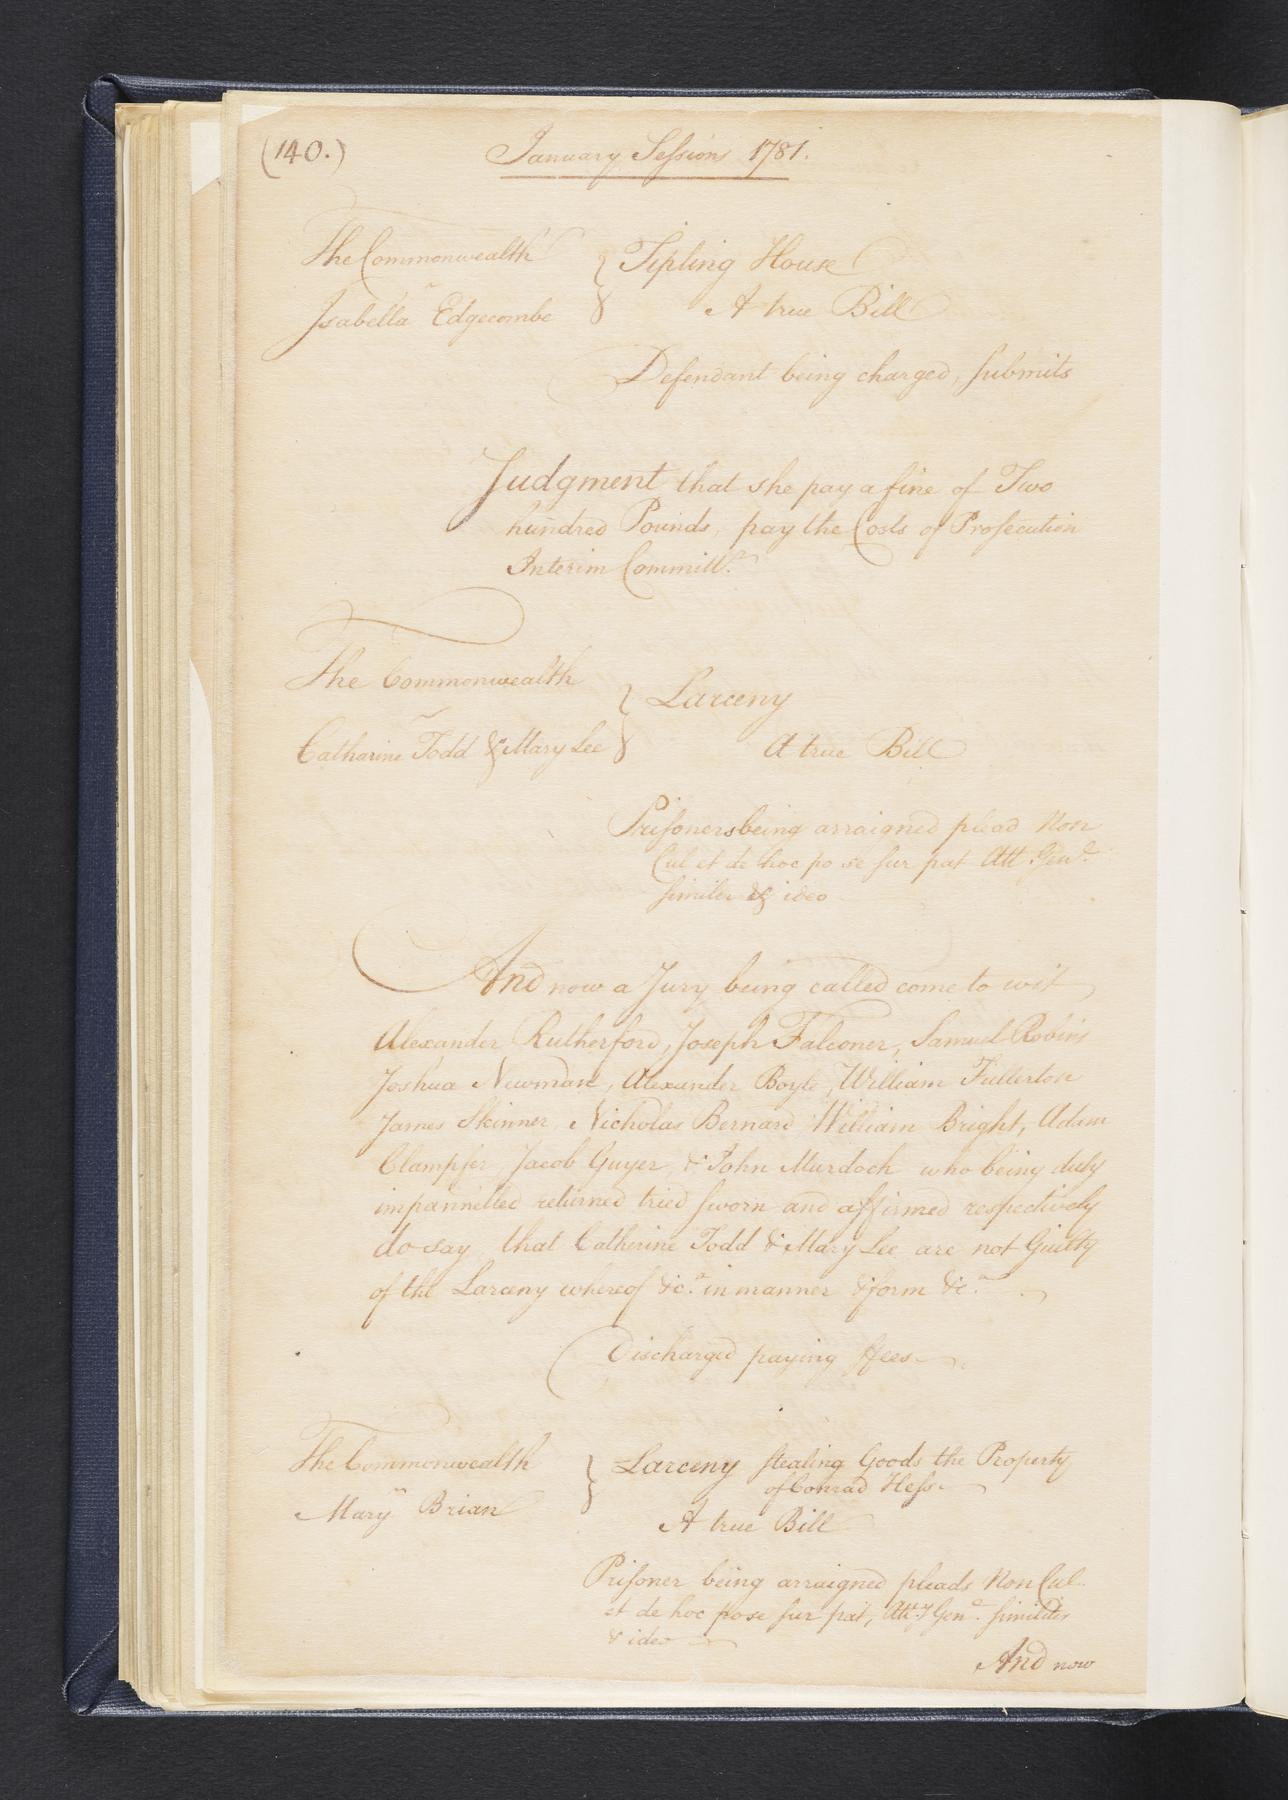 (140.)
January Sessions 1781.
The Commonwealth
Isabella Edgecombe
Tipling House
A true Bill
Defendant being charged, submits
Judgment that she pay a fine of Two
hundred Pounds, pay the Costs of Prosecution
Interim Committ.
The Commonwealth
Catharine Todd & Mary Lee
Larceny
A true Bill
Prisoners being arraigned plead Non
Cul et de hoc po se sur pat Att. Genl.
similr & ideo
And now a Jury being called come to wit
Alexander Rutherford, Joseph Falconer, Samuel Robins
Joshua Newman, Alexander Boyle, William Fullerton
James Skinner, Nicholas Bernard William Bright, Adam
Clampfer, Jacob Guyer, & John Murdoch who being duly
impannelled returned tried sworn and affirmed respectively
do say, that Catherine Todd & Mary Lee are not Guilty
of the Larceny whereof &c. in manner & form &c.
Discharged paying ffees.
The Commonwealth
Mary Brian
Larceny stealing Goods the Property
of Conrad Hess.
A true Bill
Prisoner being arraigned pleads Non Cul.
et de hoc po se sur pat, Atty. Genl. similiter
& ideo
And now